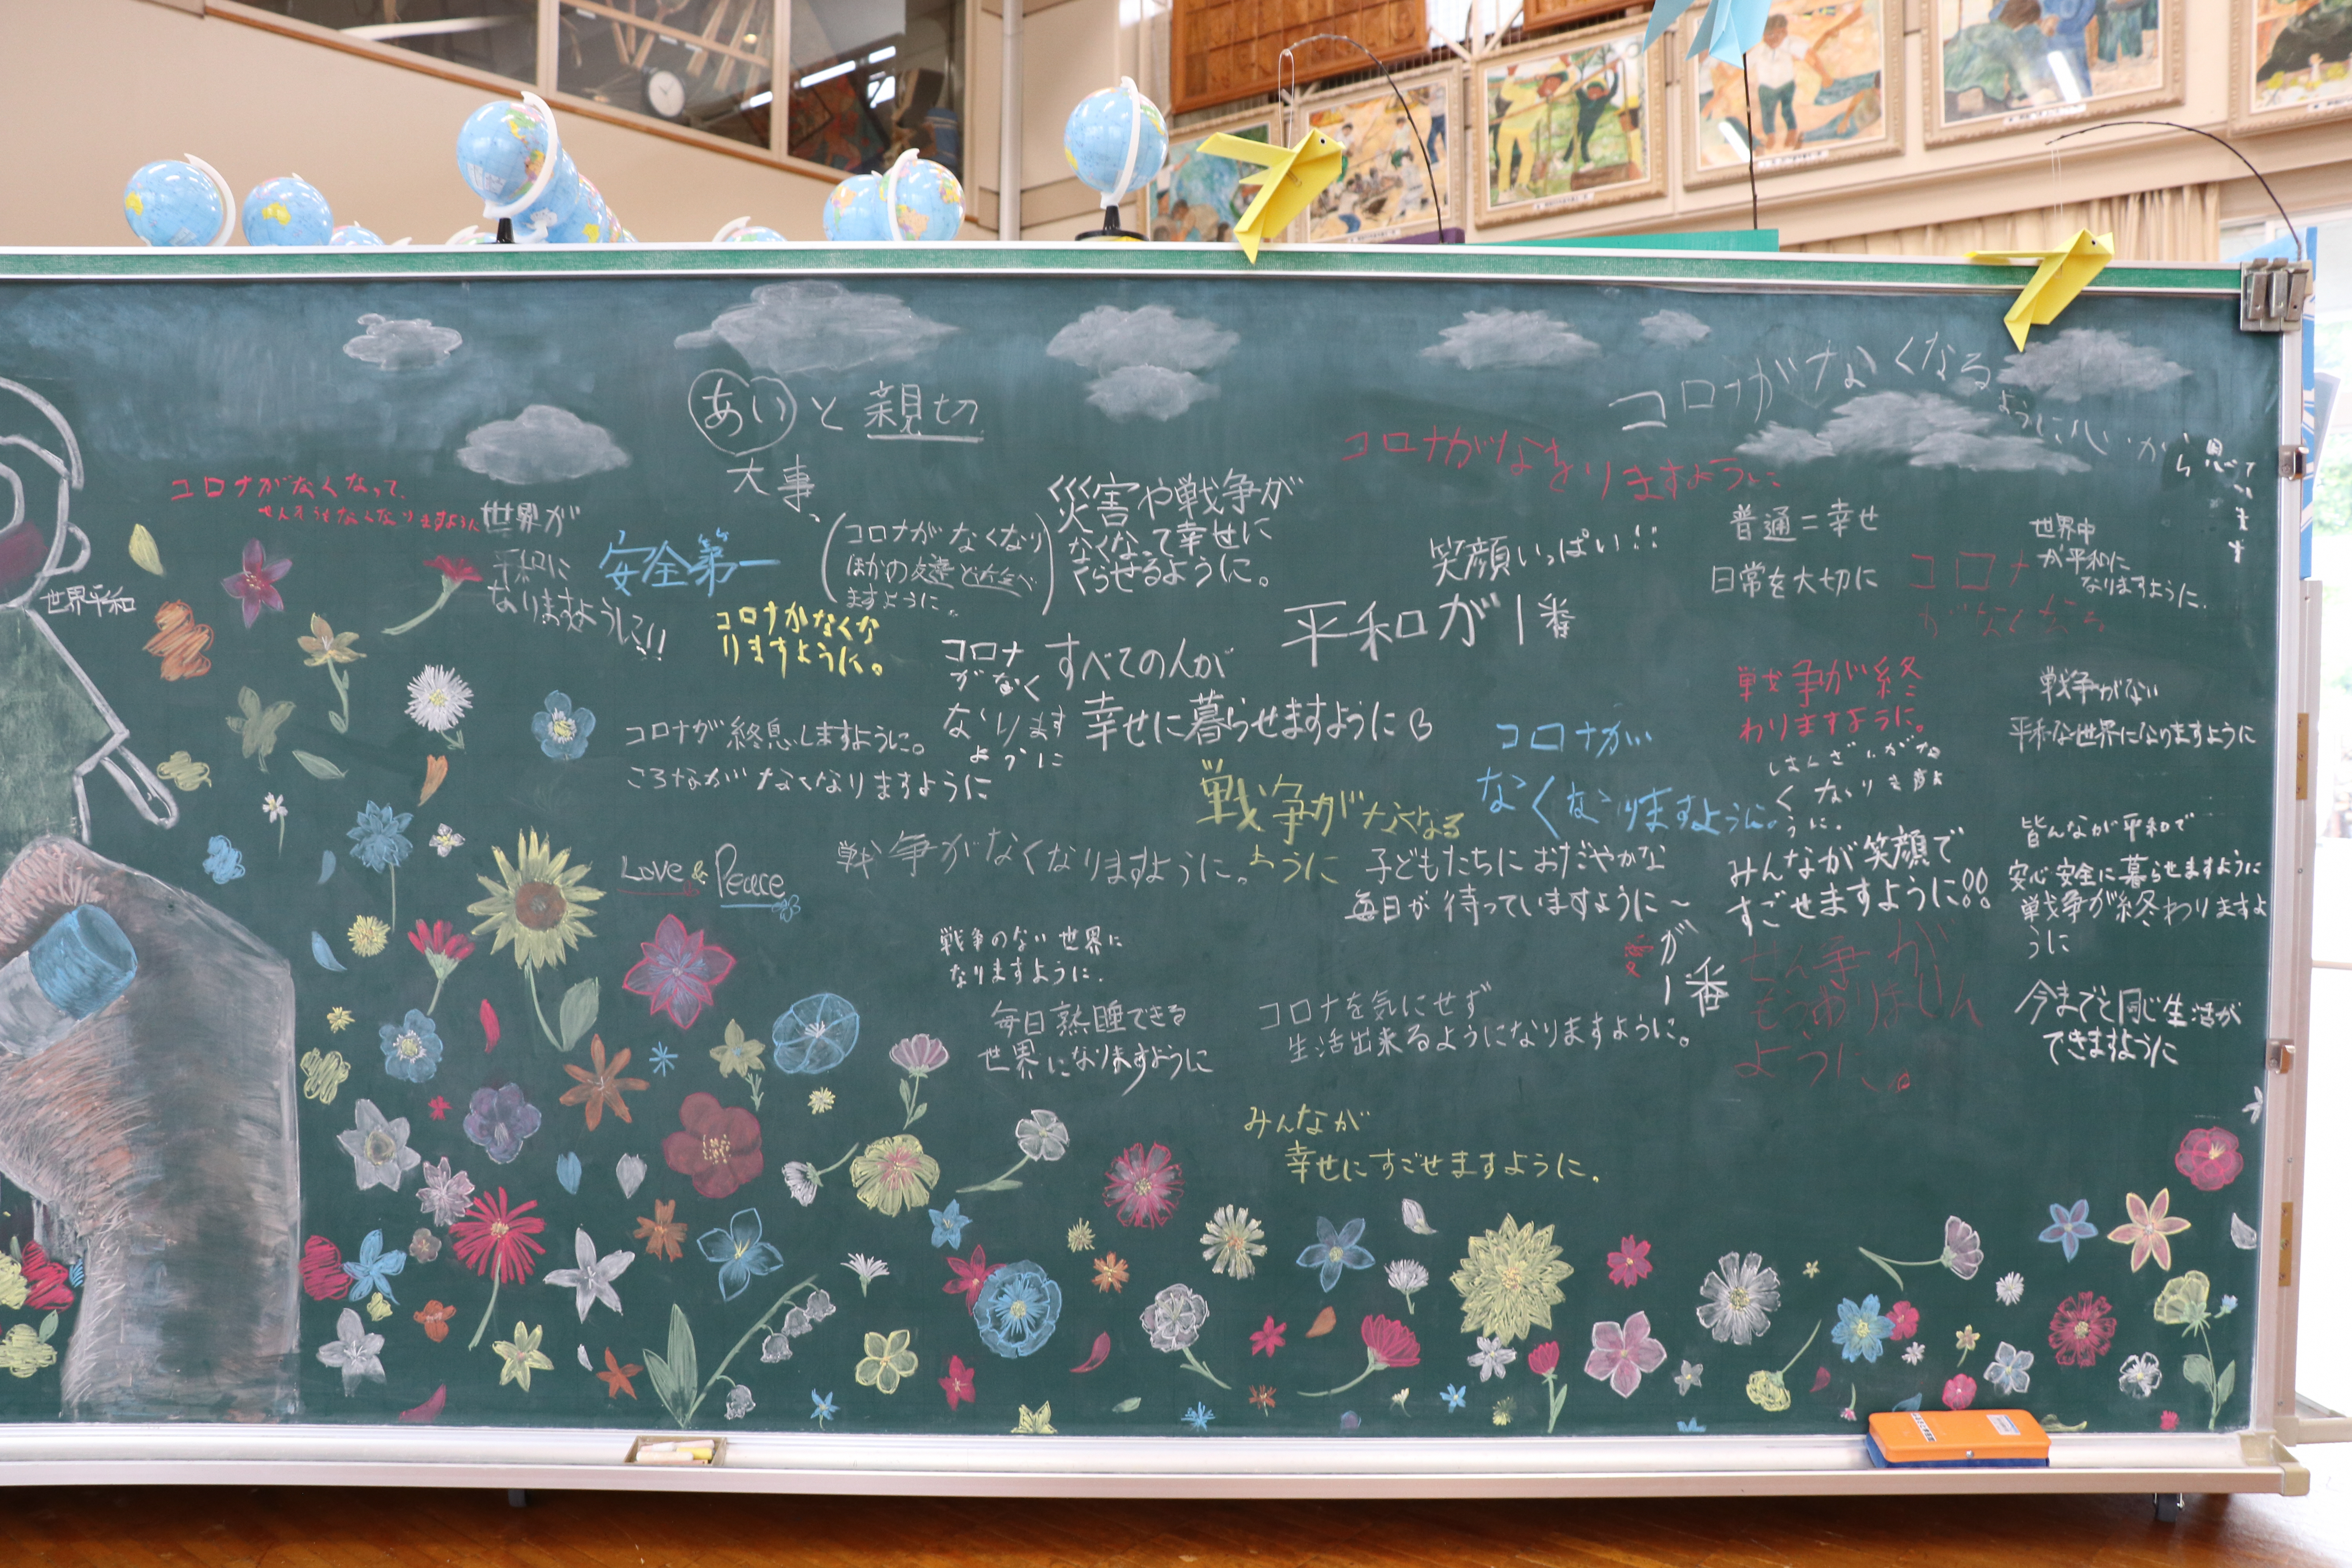 あいと親切
大事、
コロナがなくなる
ようにいいから
思ってい
ます
コロナがなおりますように
コロナがなくなって、
せんそうもなくなりますように
世界が
平和に
なりますように!!
世界平和
安全第一
(コロナがなくなり
ほかの友達と
ますように。)
災害や戦争が
なくなって幸せに
くらせるように。
笑顔いっぱい!!
平和が1番
普通=幸せ
日常を大切に
世界中
が平和に
なりますように.
コロナ
コロナがなくな
りますように。
コロナ
がなく
なります
ように
すべての人が
幸せに暮らせますように
コロナが終息しますように。
ころながなくなりますように
戦争がなくなる
ように
コロナが
なくなりますように。
戦争が終
わりますように。
はんざいがな
くなりますよ
うに。
戦争がない
平和な世界になりますように
Love & Peace
戦争がなくなりますように。
子どもたちにおだやかな
毎日が待っていますように~
みんなが笑顔で
すごせますように!!
皆んなが平和で
安心安全に暮らせますように
戦争が終わりますよ
うに
愛が一番
戦争のない世界に
なりますように.
毎日熟睡できる
世界になりますように
コロナを気にせず
生活出来るようになりますように。
せん争が
ように。
今までと同じ生活が
できますように
みんなが
幸せにすごせますように.